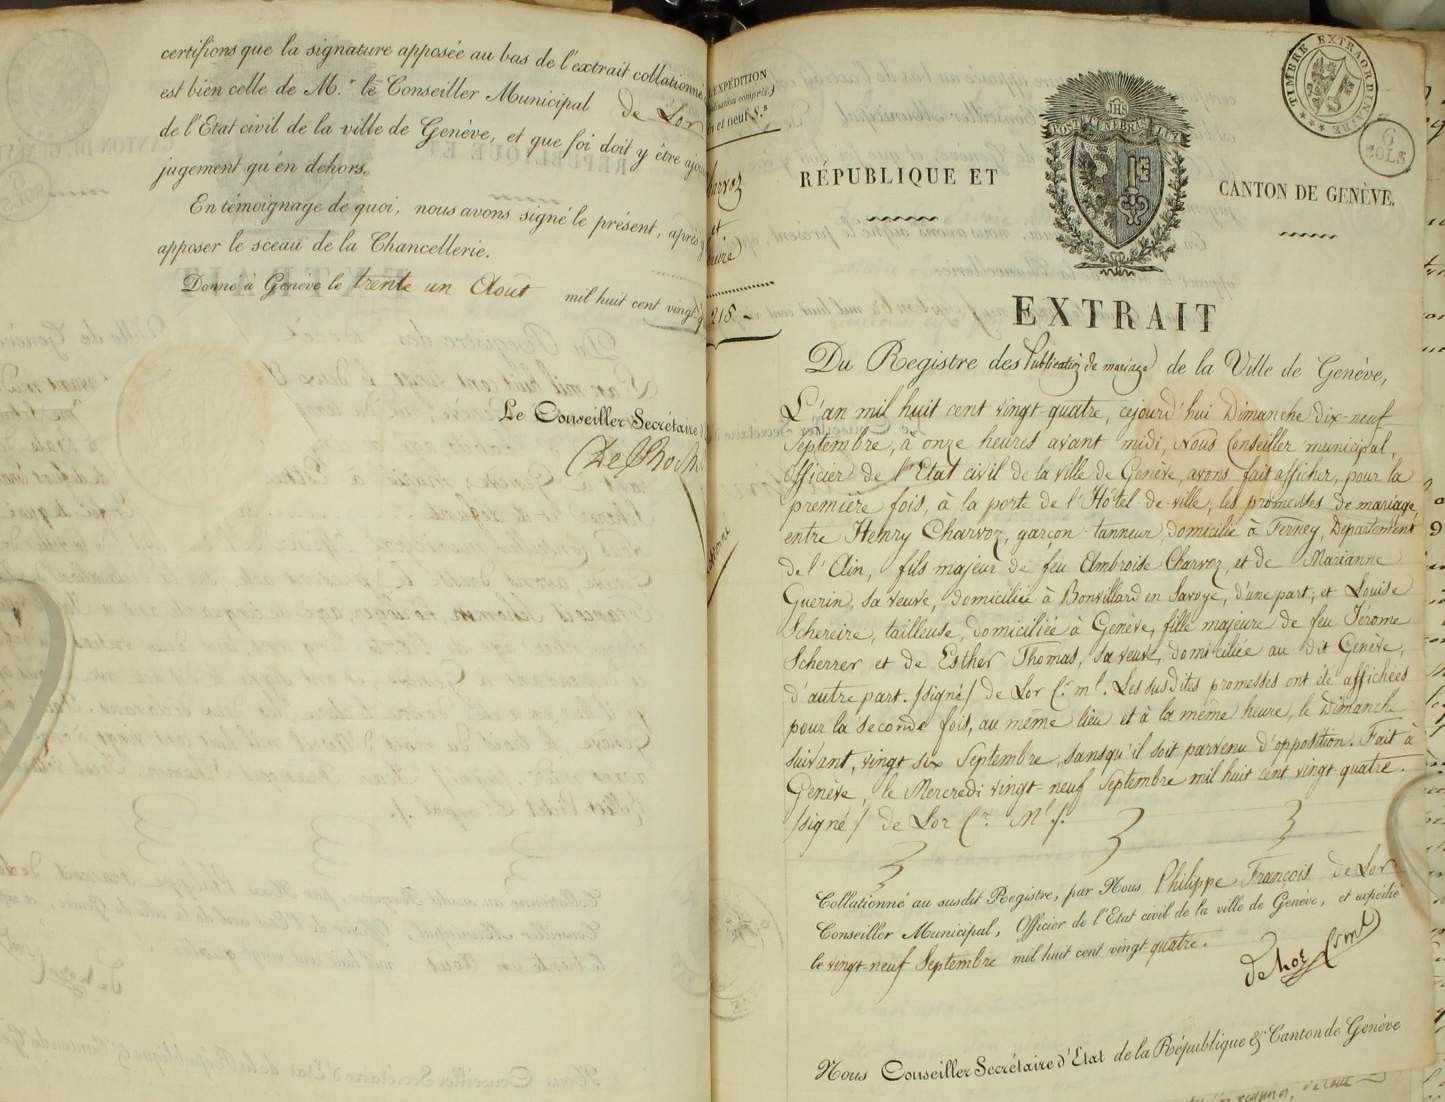 certifions que la signature apposée au bas de l'extrait collationné
est bien celle de M.r le Conseiller Municipal de Lor
de l'Etat civil de la ville de Genève, et que foi doit y être
jugement qu'en dehors.
En témoignage de quoi, nous avons signé le présent, après
apposer le sceau de la Chancellerie.
Donné à Genève le trente un Aout mil huit cent vingt
Le Conseiller Secrétaire
EXPÉDITION
et neuf S.s
et
218
TIMBRE EXTRAORDINAIRE
6 SOLS
IHS
POST TENEBRAS LUX
RÉPUBLIQUE ET CANTON DE GENÈVE.
EXTRAIT
Du Registre des Publications de mariage de la Ville de Genève,
L'an mil huit cent vingt-quatre, cejourd'hui Dimanche dix-neuf
Septembre, à onze heures avant midi, Nous Conseiller municipal,
officier de l'Etat civil de la ville de Genève, avons fait afficher, pour la
première fois, à la porte de l'Hôtel-de-ville, les promesses de mariage,
entre Henry Charvoz, garçon-tanneur, domicilié à Ferney, Département
de l'Ain, fils majeur de feu Ambroise Charvoz, et de Marianne
Guerin, sa veuve, domiciliée à Bonvillard en Savoye, d'une part; et Louise
Schereire, tailleuse, domiciliée à Genève, fille majeure de feu Jérome
Scherrer et de Esther Thomas, sa veuve, domiciliée au dit Genève,
d'autre part. /signé/ de Lor C.r m.l. Les susdites promesses ont été affichées
pour la seconde fois, au même lieu et à la même heure, le Dimanche
suivant, vingt six Septembre, sans qu'il soit parvenu d'opposition. Fait à
Genève, le Mercredi vingt-neuf Septembre mil huit cent vingt-quatre.
/signé/ de Lor C.r M.l /.
Collationné au susdit Registre, par Nous Philippe François de Lor
Conseiller Municipal, Officier de l'Etat civil de la ville de Genève, et expédié
le vingt-neuf Septembre mil huit cent vingt-quatre.
de Lor Cr ml
Nous Conseiller Secrétaire d'Etat de la République & Canton de Genève